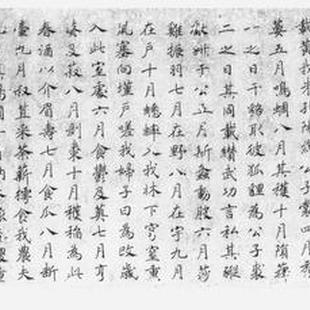 載黃我朱孔陽為公子裳四月秀
葽五月鳴蜩八月其穫十月隕蘀
一之日于貉取彼狐狸為公子裘
二之日其同載纘武功言私其豵
獻豣于公五月斯螽動股六月莎
雞振羽七月在野八月在宇九月
在戶十月蟋蟀入我牀下穹窒熏
鼠塞向墐戶嗟我婦子曰為改歲
入此室處六月食鬱及薁七月亨
葵及菽八月剝棗十月穫稻為此
春酒以介眉壽七月食瓜八月斷
壺九月叔苴采荼薪樗食我農夫